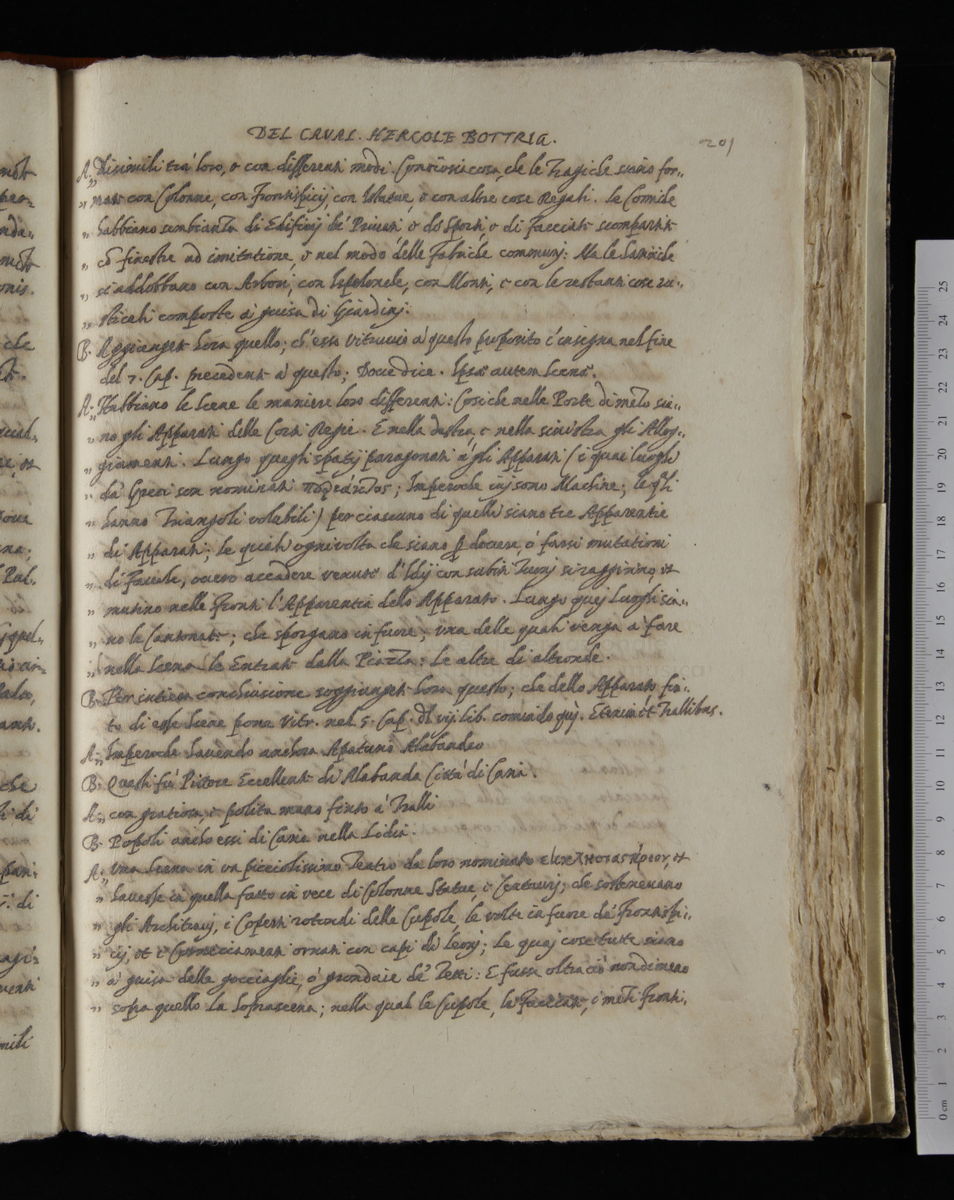 DEL CAVAL. HERCOLE BOTTRIG.
201
A. Dissimili trà loro, e con differenti modi. Conciosia cosa, che le Tragiche siano for„
„ mate con Colonne, con Frontispicij, con Statue, e con altre cose Regali. le Comiche
„ habbiano sembianza di Edificij de' Privati e de Sporti, e di facciate scompartite
„ cō finestre ad imitatione, e nel modo delle Fabriche communi: Ma le Satiriche
„ si addobbano con Arbori, con Spelonche, con Monti, e con le restanti cose ru„
„ sticali composte à guisa di Giardinj.
B. Aggiongete hora quello; ch'esso Vitruvio à questo proposito c'insegna nel fine
del 7. Cap. precedente à questo; Dove dice. Ipsae autem scenae.
A. Habbiano le scene le maniere loro differenti: Cosi che nelle Porte di mezo sia„
„ no gli Apparati delle Corti Regie. E nella destra, e nella sinistra gli Allog„
„ giamenti. Lungo quegli spatij paragonati à gli Apparati (i quai luoghi
„ da Greci son nominati περιάκτος; Imperoche ivj sono Machine; le q̃li
„ hanno Triangoli volubili) per ciascuno di quelle siano tre Apparentie
„ di Apparati; le quali ogni volta che siano p̱ docere, ò farsi mutationi
„ di Favole, overo accadere venute d'Idij con subiti Tuonj si raggirino, et
„ mutino nelle fronti l'Apparentia dello Apparato. Lungo quej luoghi sia„
„ no le Cantonate; che sporgano in fuore; una delle quali venga a fare
nella Scena le Entrate dalla Piazza: Le altre di altronde.
B. Per intiera conclusione soggiungete hora questo; che dello Apparato fin„
to di esse Scene pone Vitr. nel 5. Cap. dl vij lib. comincido quj. Etenim et Trallibus.
A. Imperoche havendo anchora Apaturio Alabandeo
B. Questi fù Pittore Eccellente di Alabanda Città di Caria.
A. con gratiosa, e polita mano finto à Tralli
B. Popoli anch'essi di Caria nella Lidia.
A. Una Scena in un picciolissimo Teatro da loro nominato εκκλησιαστήριον, et
„ havesse in quella fatto in vece di Colonne Statue, e Centaurj; che sostenevano
„ gli Architravj, i Coperti rotondi delle Cupole, le volte in fuore de' Frontispi„
„ cij, et i Corniciamenti ornati con capi di Leonj; Le quaj cose tutte siano
„ à guisa delle gocciaglie, ò grondaie de' Tetti: E fusse oltra ciò nondimeno
„ sopra quello la Soprascena; nella qual le Cupole, le facciate, i mezi Fronti„